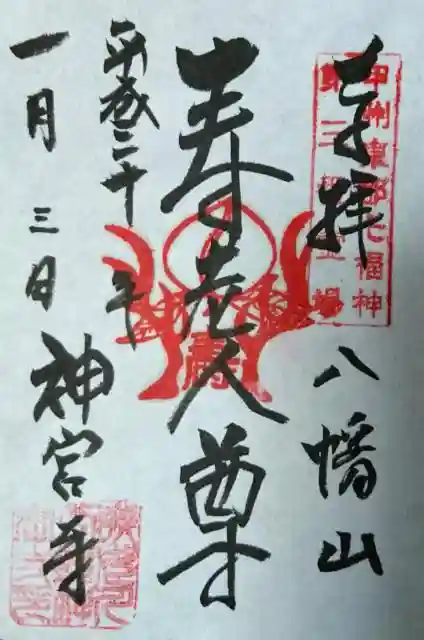 奉拝
八幡山
甲州東郡七福神
第三番霊場
寿老人尊
寿
平成二十年
一月三日
神宮寺